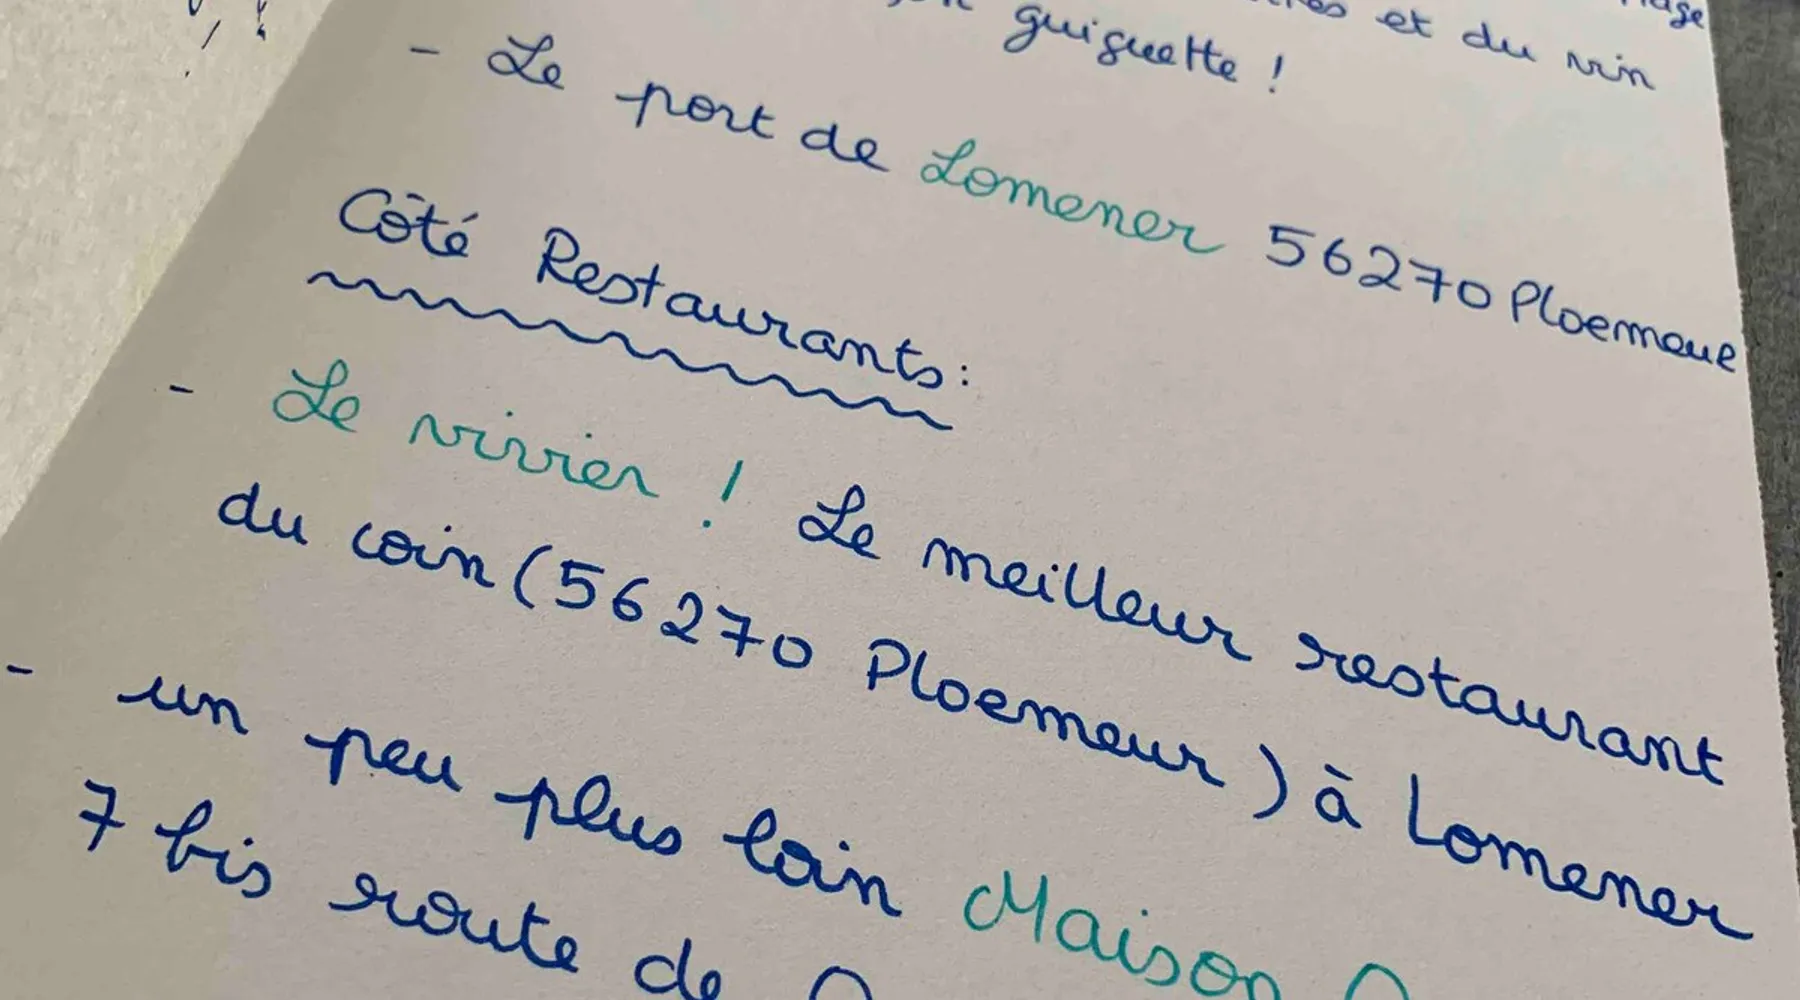 et du vin
guiguette !
- Le port de Lomener 56270 Ploemeue
Côté Restaurants :
- Le vivier ! Le meilleur restaurant
du coin (56270 Ploemeur) à Lomener
- un peu plus loin Maison
7 bis route de